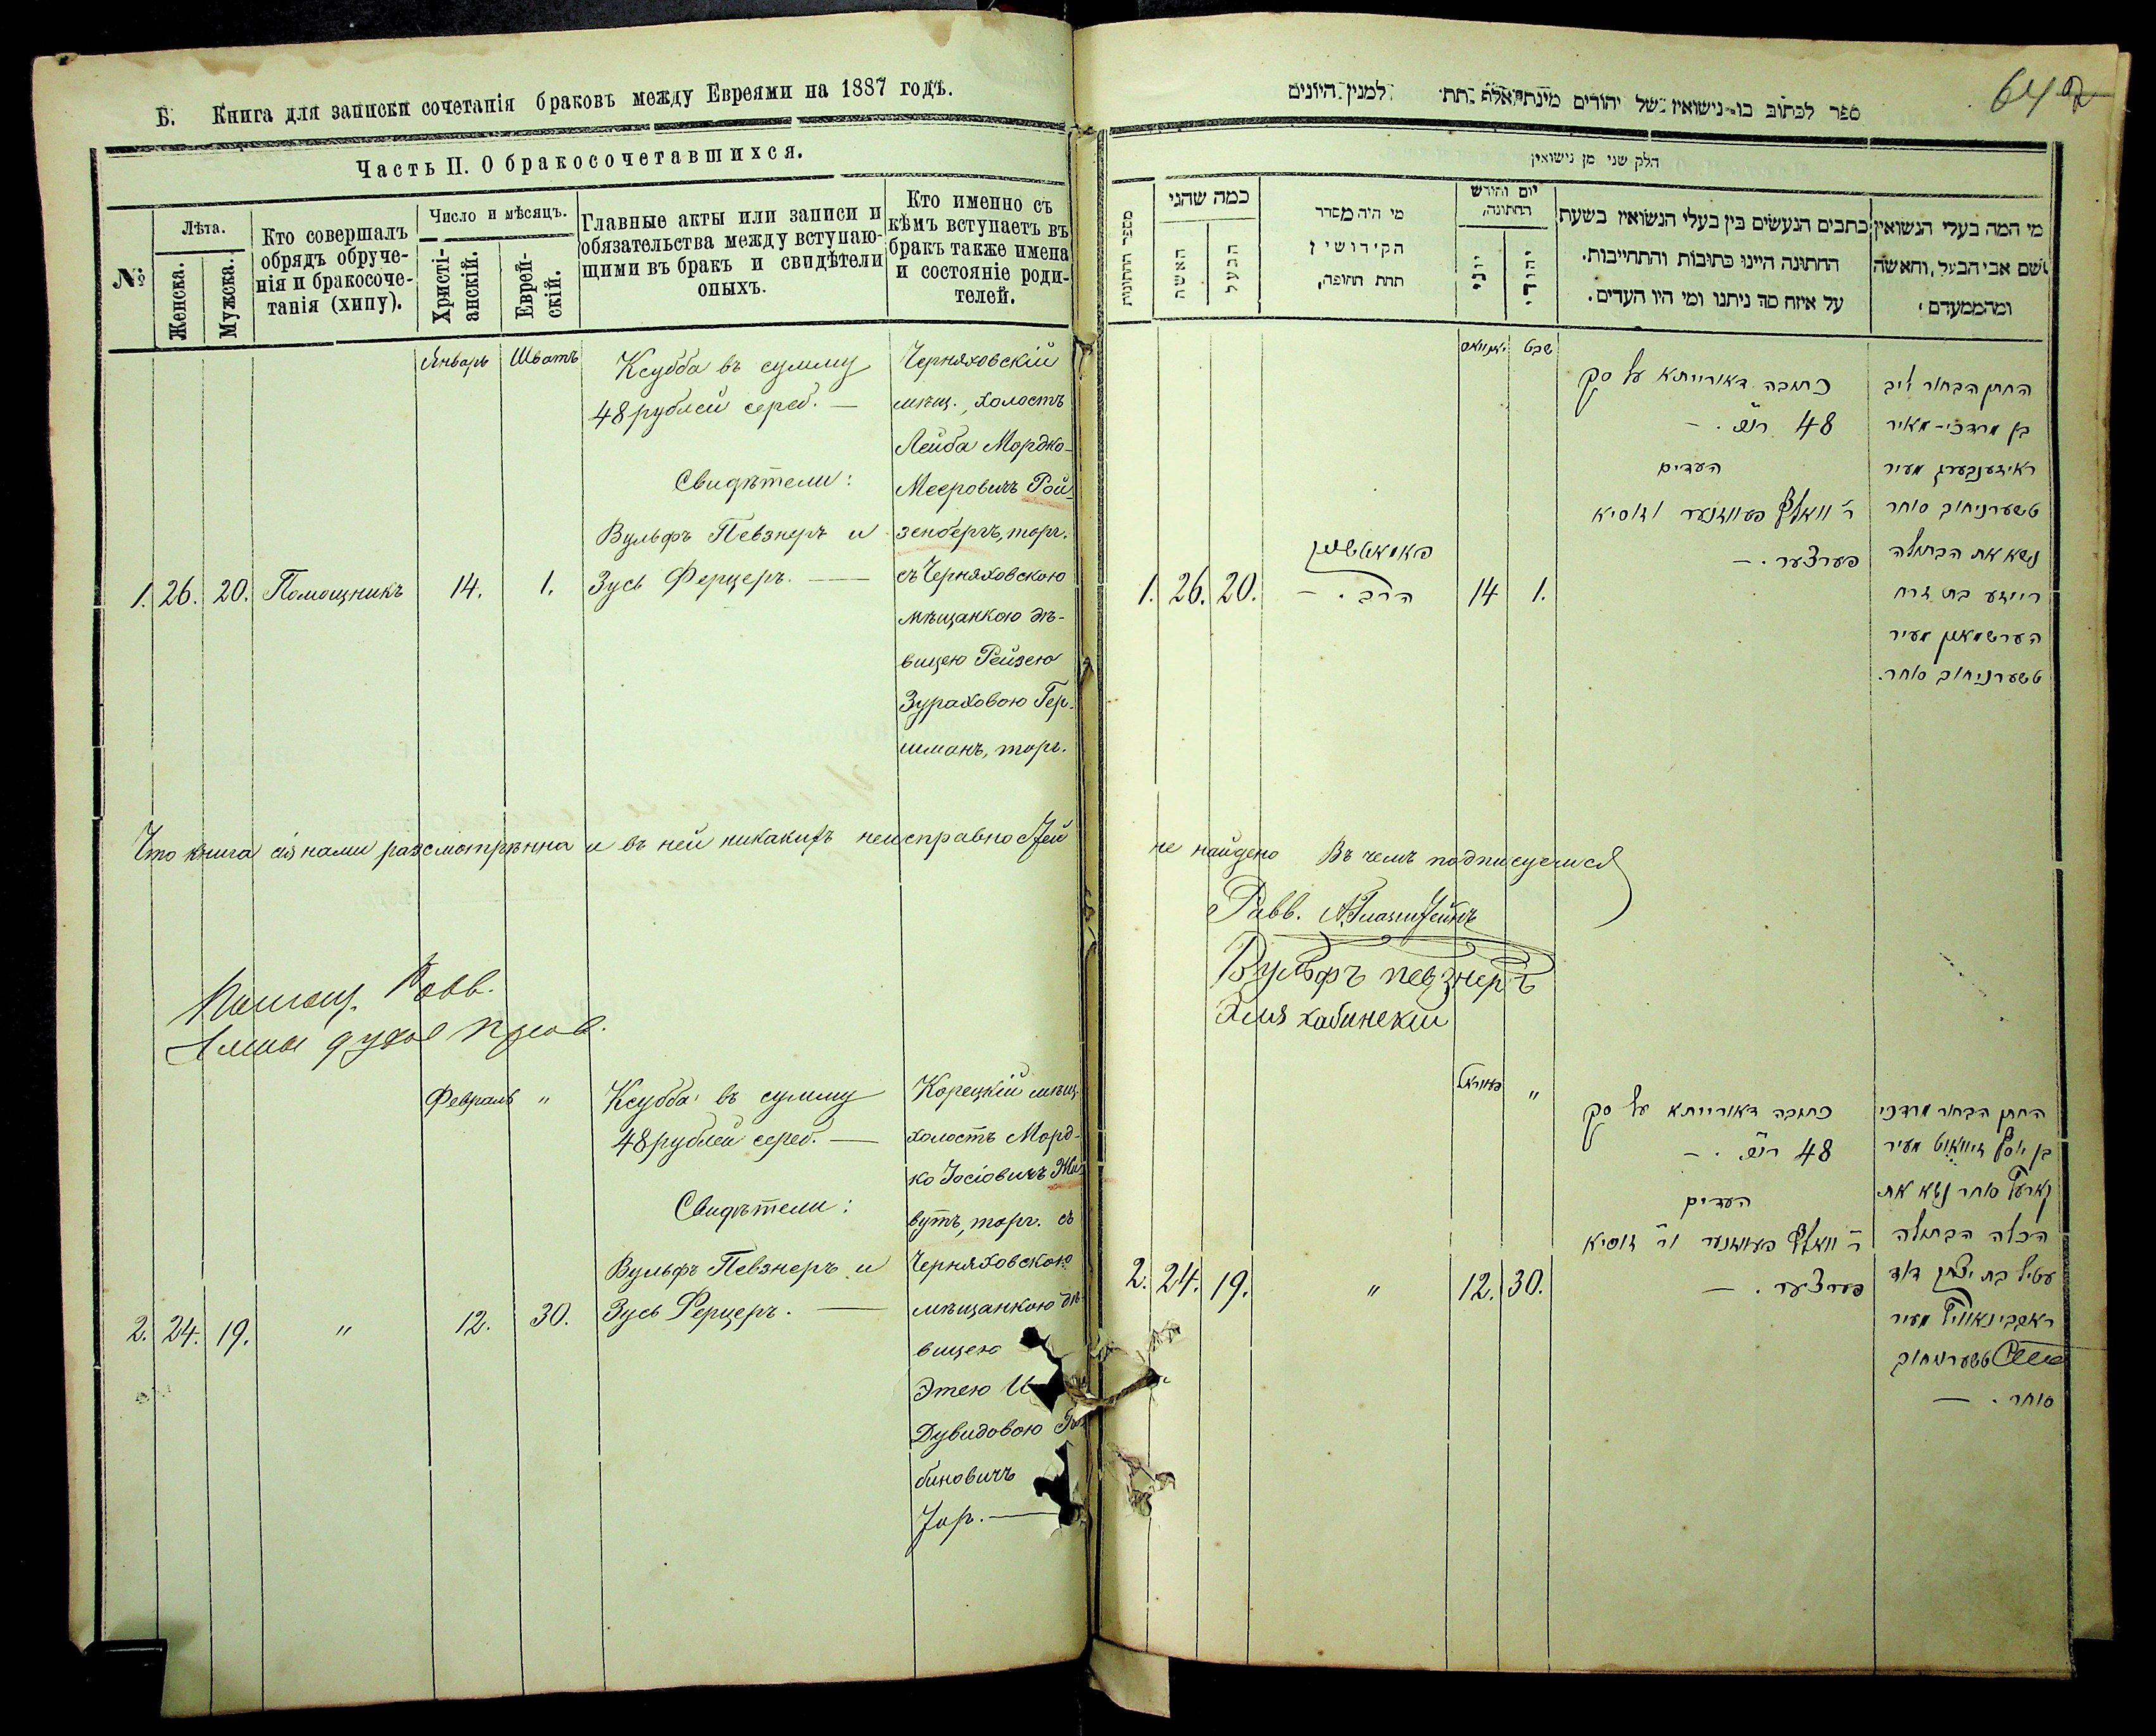 Б. Книга для записки сочетанія браковъ между Евреями на 1887 годъ.
Часть II. О бракосочетавшихся.
№
Лѣта.
Женска.
Мужска.
Кто совершалъ
обрядъ обруче-
нія и бракосоче-
танія (хипу).
Число и мѣсяцъ.
Христі-
анскій.
Еврей-
скій.
Главные акты или записи и
обязательства между вступаю-
щими въ бракъ и свидѣтели
оныхъ.
Кто именно съ
кѣмъ вступаетъ въ
бракъ также имена
и состояніе роди-
телей.
Январь
Шватъ
1. 26. 20. Помощникъ 14. 1.
Ксубба въ сумму
48 рублей сереб. —
Свидѣтели:
Вульфъ Певзнеръ и
Зусь Ферцеръ. —
Черняховскій
мѣщ., холостъ
Лейба Мордко-
Мееровичъ Рой-
зенбергъ, торг.
съ Черняховскою
мѣщанкою дѣ-
вицею Рейзею
Зураховою Гер-
шманъ, торг.
Что книга сія нами разсмотрѣнна и въ ней никакихъ неисправностей
Помощ. Равв.
Февраль
"
2. 24. 19. " 12. 30.
Ксубба въ сумму
48 рублей сереб. —
Свидѣтели:
Вульфъ Певзнеръ и
Зусь Ферцеръ. —
Корецкій мѣщ.
холостъ Морд-
ко Іосіовичъ
вутъ, торг. съ
Черняховскою
мѣщанкою дѣ-
вицею
Этею И
Дувидовою
биновичъ
Тор. —
64
ספר לכתוב בו נישואין של יהודים משנת אלף תת למנין היונים
חלק שני מן נישואין
מספר החתונות
כמה שהני
האשה
הבעל
מי היה מסדר
הקידושין
תחת החופה,
יום וחודש
החתונה,
יוני
יהודי
כתבים הנעשים בין בעלי הנשואין בשעת
החתונה היינו כתובות והתחייבות.
על איזה סך ניתנו ומי היו העדים.
מי המה בעלי הנשואין
שם אבי הבעל, והאשה
ומהמעמדם
שבט
1. 26. 20.
הרב. —
14 1.
כתובה דאורייתא על סך
48 רו״כ. —
העדים
ר׳ וואלף פעווזנער וזוסיא
פערצער. —
החתן הבחור ליב
בן מרדכי-מאיר
ראיזענבערג מעיר
טשערניחוב סוחר
נשא את הבתולה
רייזע בת זרח
הערשמאן מעיר
טשערניחוב סוחר.
не найдено Въ чемъ подписуемся
Равв.
Вульфъ певзнеръ
Хабинскій
"
2. 24. 19. " 12. 30.
כתובה דאורייתא על סך
48 רו״כ. —
העדים
ר׳ וואלף פעווזנער ור׳ זוסיא
פערצער. —
החתן הבחור מרדכי
בן יוסף מעיר
קארעץ סוחר נשא את
הכלה הבתולה
עטיל בת יצחק דוד
ראבינאוויץ מעיר
טשערניחוב
סוחר. —